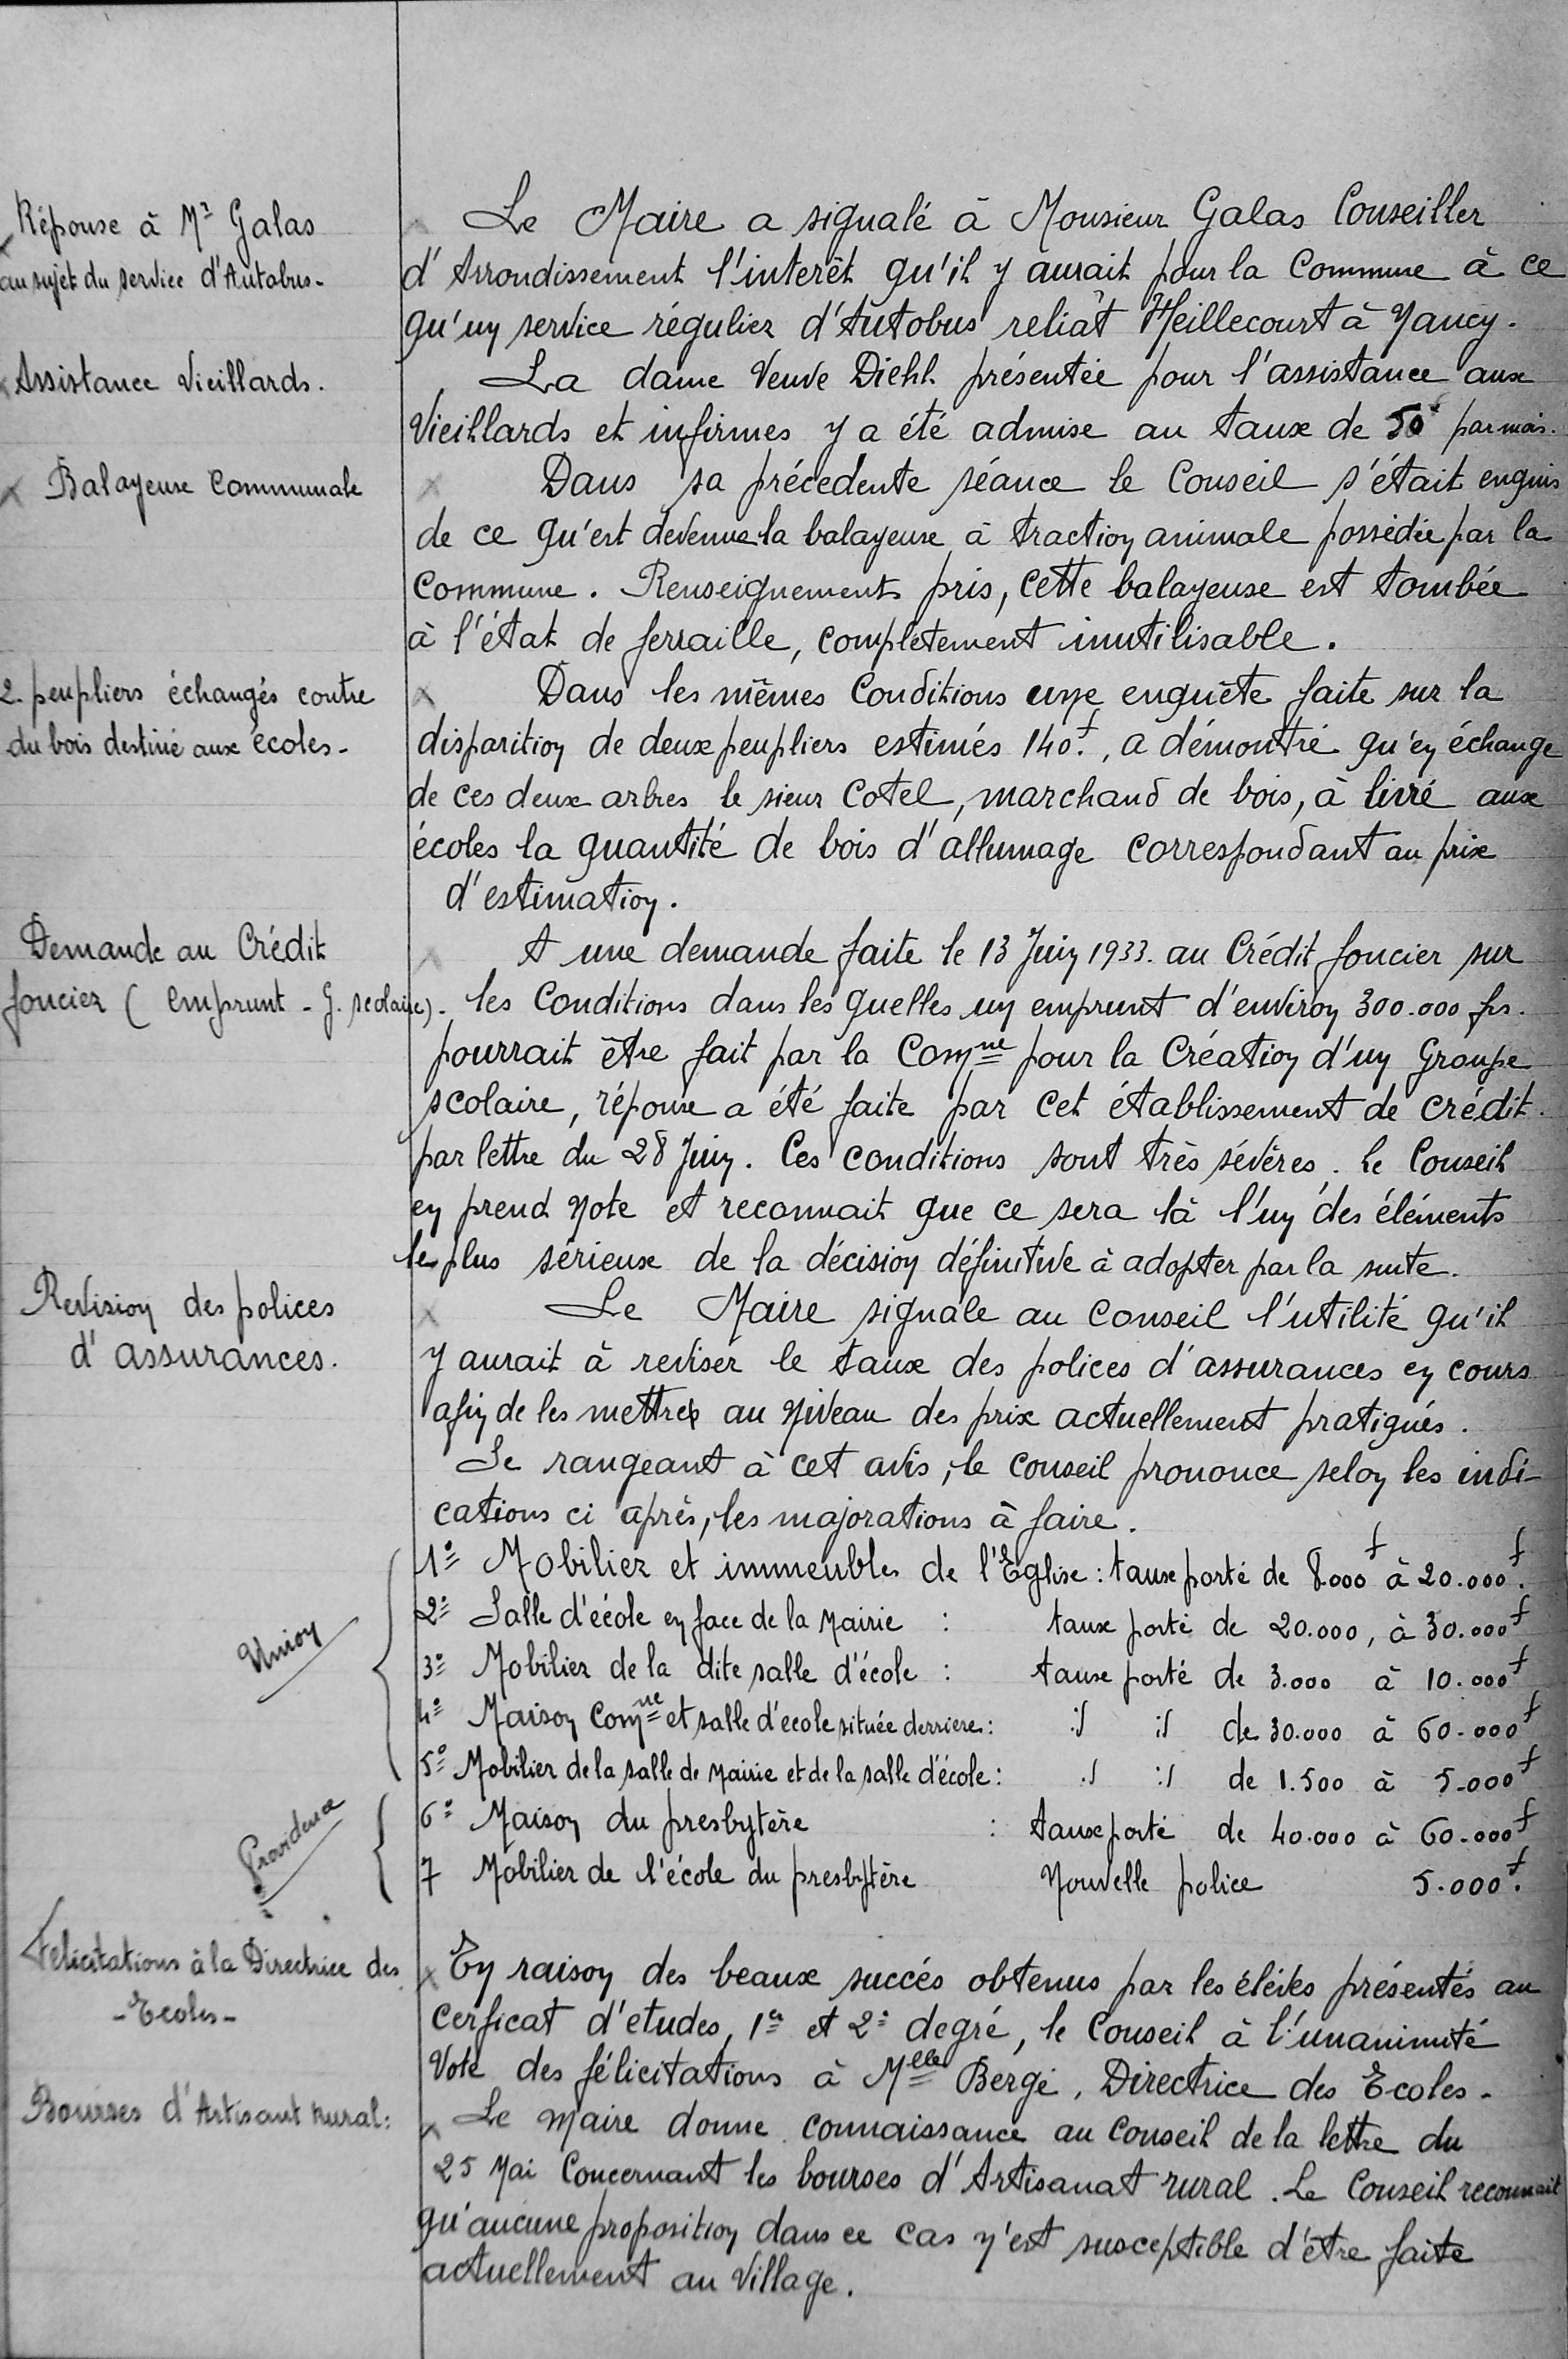 Réponse à Mr Galas
au sujet du service d'Autobus-
Le Maire a signalé à Monsieur Galas Conseiller
d'Arrondissement l'interêt qu'il y aurait pour la Commune à ce
qu'un service régulier d'Autobus reliât Heillecourt à Nancy.
Assistance Vieillards.
La dame Veuve Diehl présentée pour l'assistance aux
Vieillards et infirmes y a été admise au taux de 50f par mois.
Balayeuse Communale
Dans sa précedente séance le Conseil s'était enquis
de ce qu'est devenue la balayeuse à traction animale possédée par la
Commune. Renseignements pris, cette balayeuse est tombée
à l'état de ferraille, complètement inutilisable.
2 peupliers échangés contre
du bois destiné aux écoles-
Dans les mêmes Conditions une enquête faite sur la
disparition de deux peupliers estimés 140f., a démontré qu'en échange
de ces deux arbres le sieur Cotel, marchand de bois, à livré aux
écoles la quantité de bois d'allumage correspondant au prix
d'estimation.
Demande au Crédit
foncier (emprunt - G. scolaire).
A une demande faite le 13 Juin 1933. au Crédit foncier sur
les Conditions dans les quelles un emprunt d'environ 300.000 frs.
pourrait être fait par la Comne pour la Création d'un Groupe
scolaire, réponse a été faite par cet établissement de crédit.
par lettre du 28 Juin. Ces conditions sont très sévères. Le Conseil
en prend Note et reconnait que ce sera là l'un des éléments
les plus sérieux de la décision définitive à adopter par la suite.
Revision des polices
d'assurances.
Le Maire signale au Conseil l'utilité qu'il
y aurait à reviser le taux des polices d'assurances en cours
afin de les mettre au Niveau des prix actuellement pratiqués.
Se rangeant à cet avis, le conseil prononce selon les indi-
cations ci après, les majorations à faire.
Union
1° Mobilier et immeubles de l'Eglise : taux porté de 8.000f à 20.000f.
2° Salle d'école en face de la Mairie : taux porté de 20.000, à 30.000f
3° Mobilier de la dite salle d'école : taux porté de 3.000 à 10.000f
4° Maison Comne et salle d'ecole située derriere : :/ :/ de 30.000 à 60.000f
5° Mobilier de la salle de Mairie et de la salle d'école : :/ :/ de 1.500 à 5.000f
Providence
6° Maison du presbytère : taux porté de 40.000 à 60.000f
7 Mobilier de l'école du presbytère Nouvelle police 5.000f.
Felicitations à la Directrice des
-Ecoles-
En raison des beaux succés obtenus par les élèves présentés au
cerficat d'etudes, 1er et 2e degré, le Conseil à l'unanimité
Vote des félicitations à Melle Bergé, Directrice des Ecoles.
Bourses d'Artisant rural :
Le Maire donne connaissance au Conseil de la lettre du
25 Mai Concernant les bourses d'Artisanat rural. Le Conseil reconnait
qu'aucune proposition dans ce cas n'est susceptible d'être faite
actuellement au Village.